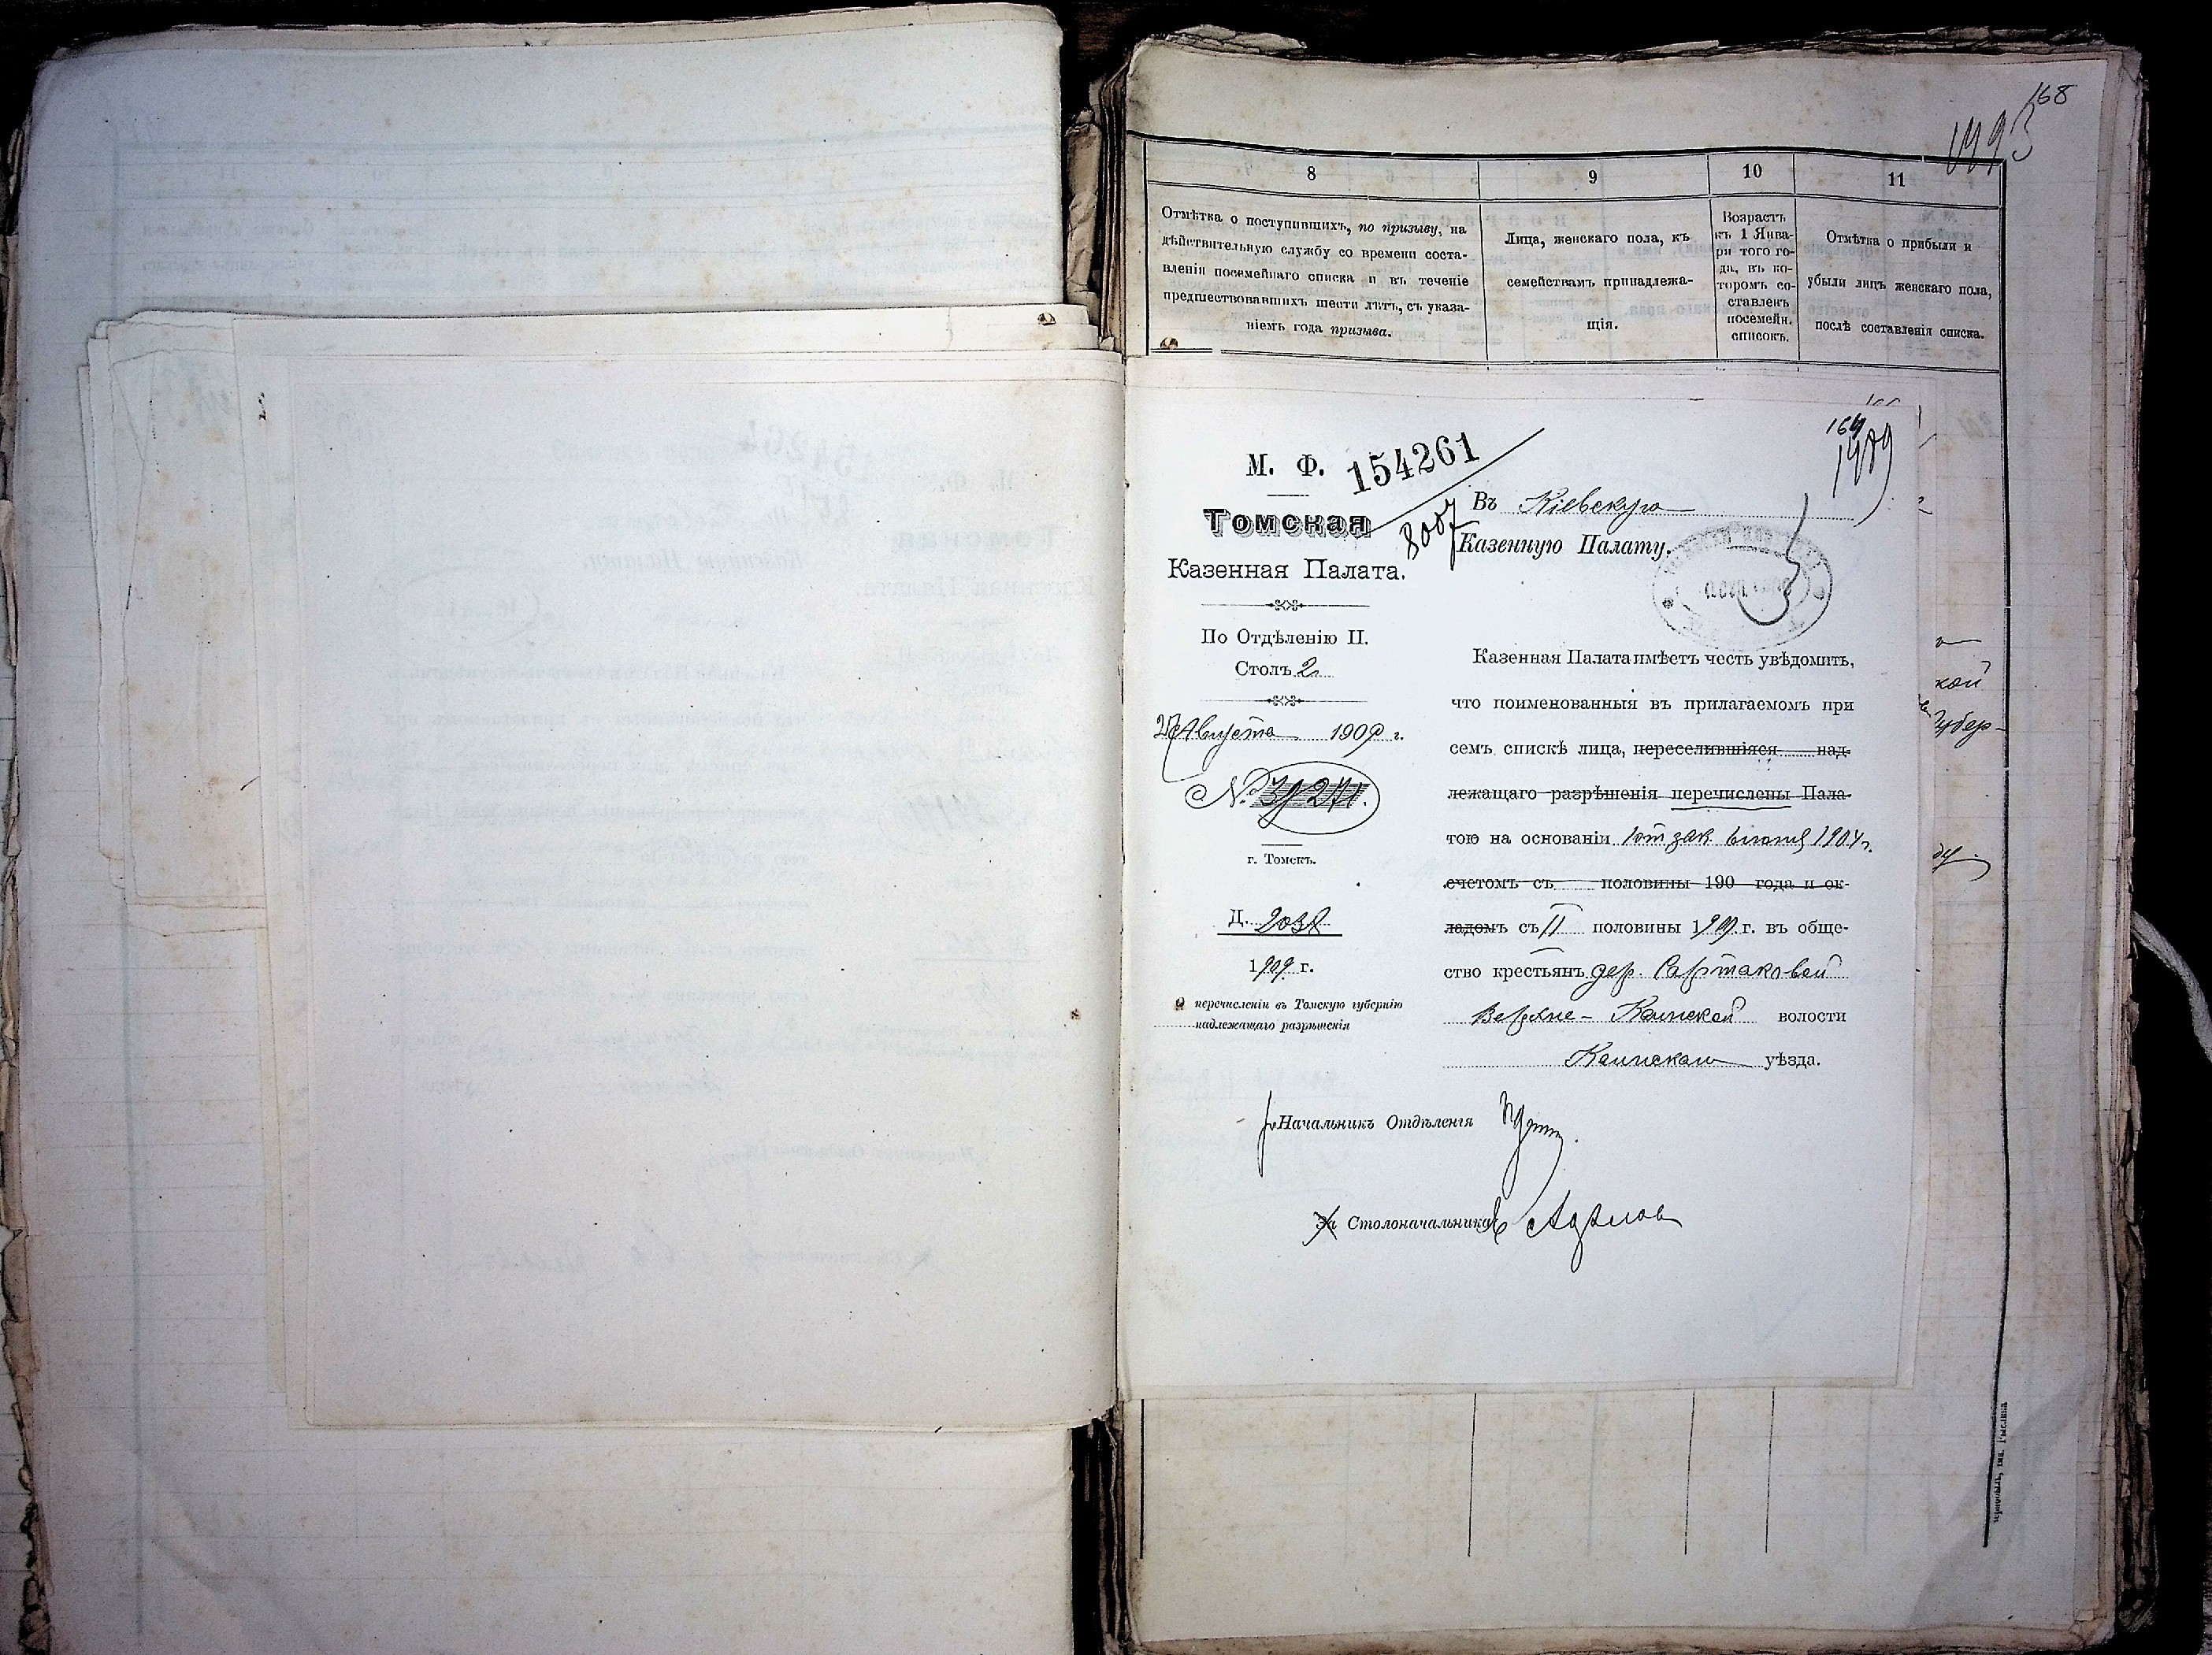 168
1493
8
9
10
11
Отмѣтка о поступившихъ, по призыву, на
дѣйствительную службу со времени соста-
вленія посемейнаго списка и въ теченіе
предшествовавшихъ шести лѣтъ, съ указа-
ніемъ года призыва.
Лица, женскаго пола, къ
семействамъ принадлежа-
щія.
Возрастъ
къ 1 Янва-
ри того го-
да, въ ко-
торомъ со-
ставленъ
посемейн.
списокъ.
Отмѣтка о прибыли и
убыли лицъ женскаго пола,
послѣ составленія списка.
164
1489
М. Ф. 154261
Томская
Казенная Палата.
8007
По Отдѣленію II.
Столъ 2
27 Августа 1909 г.
г. Томскъ.
Д. 2038
1909 г.
О перечисленіи въ Томскую губернію
надлежащаго разрѣшенія
Въ Кіевскую
Казенную Палату.
Казенная Палата имѣетъ честь увѣдомить,
что поименованныя въ прилагаемомъ при
семъ спискѣ лица, переселившіяся над-
лежащаго разрѣшенія перечислены Пала-
тою на основаніи 1 от. зак. 6 июня 1904 г.
счетомъ съ половины 190 года и ок-
ладомъ съ II половины 1909 г. въ обще-
ство крестьянъ дер. Сартаковой
Верхне-Каинской волости
Каинскаго уѣзда.
Начальникъ Отдѣленія
За Столоначальника
кой
Губер-